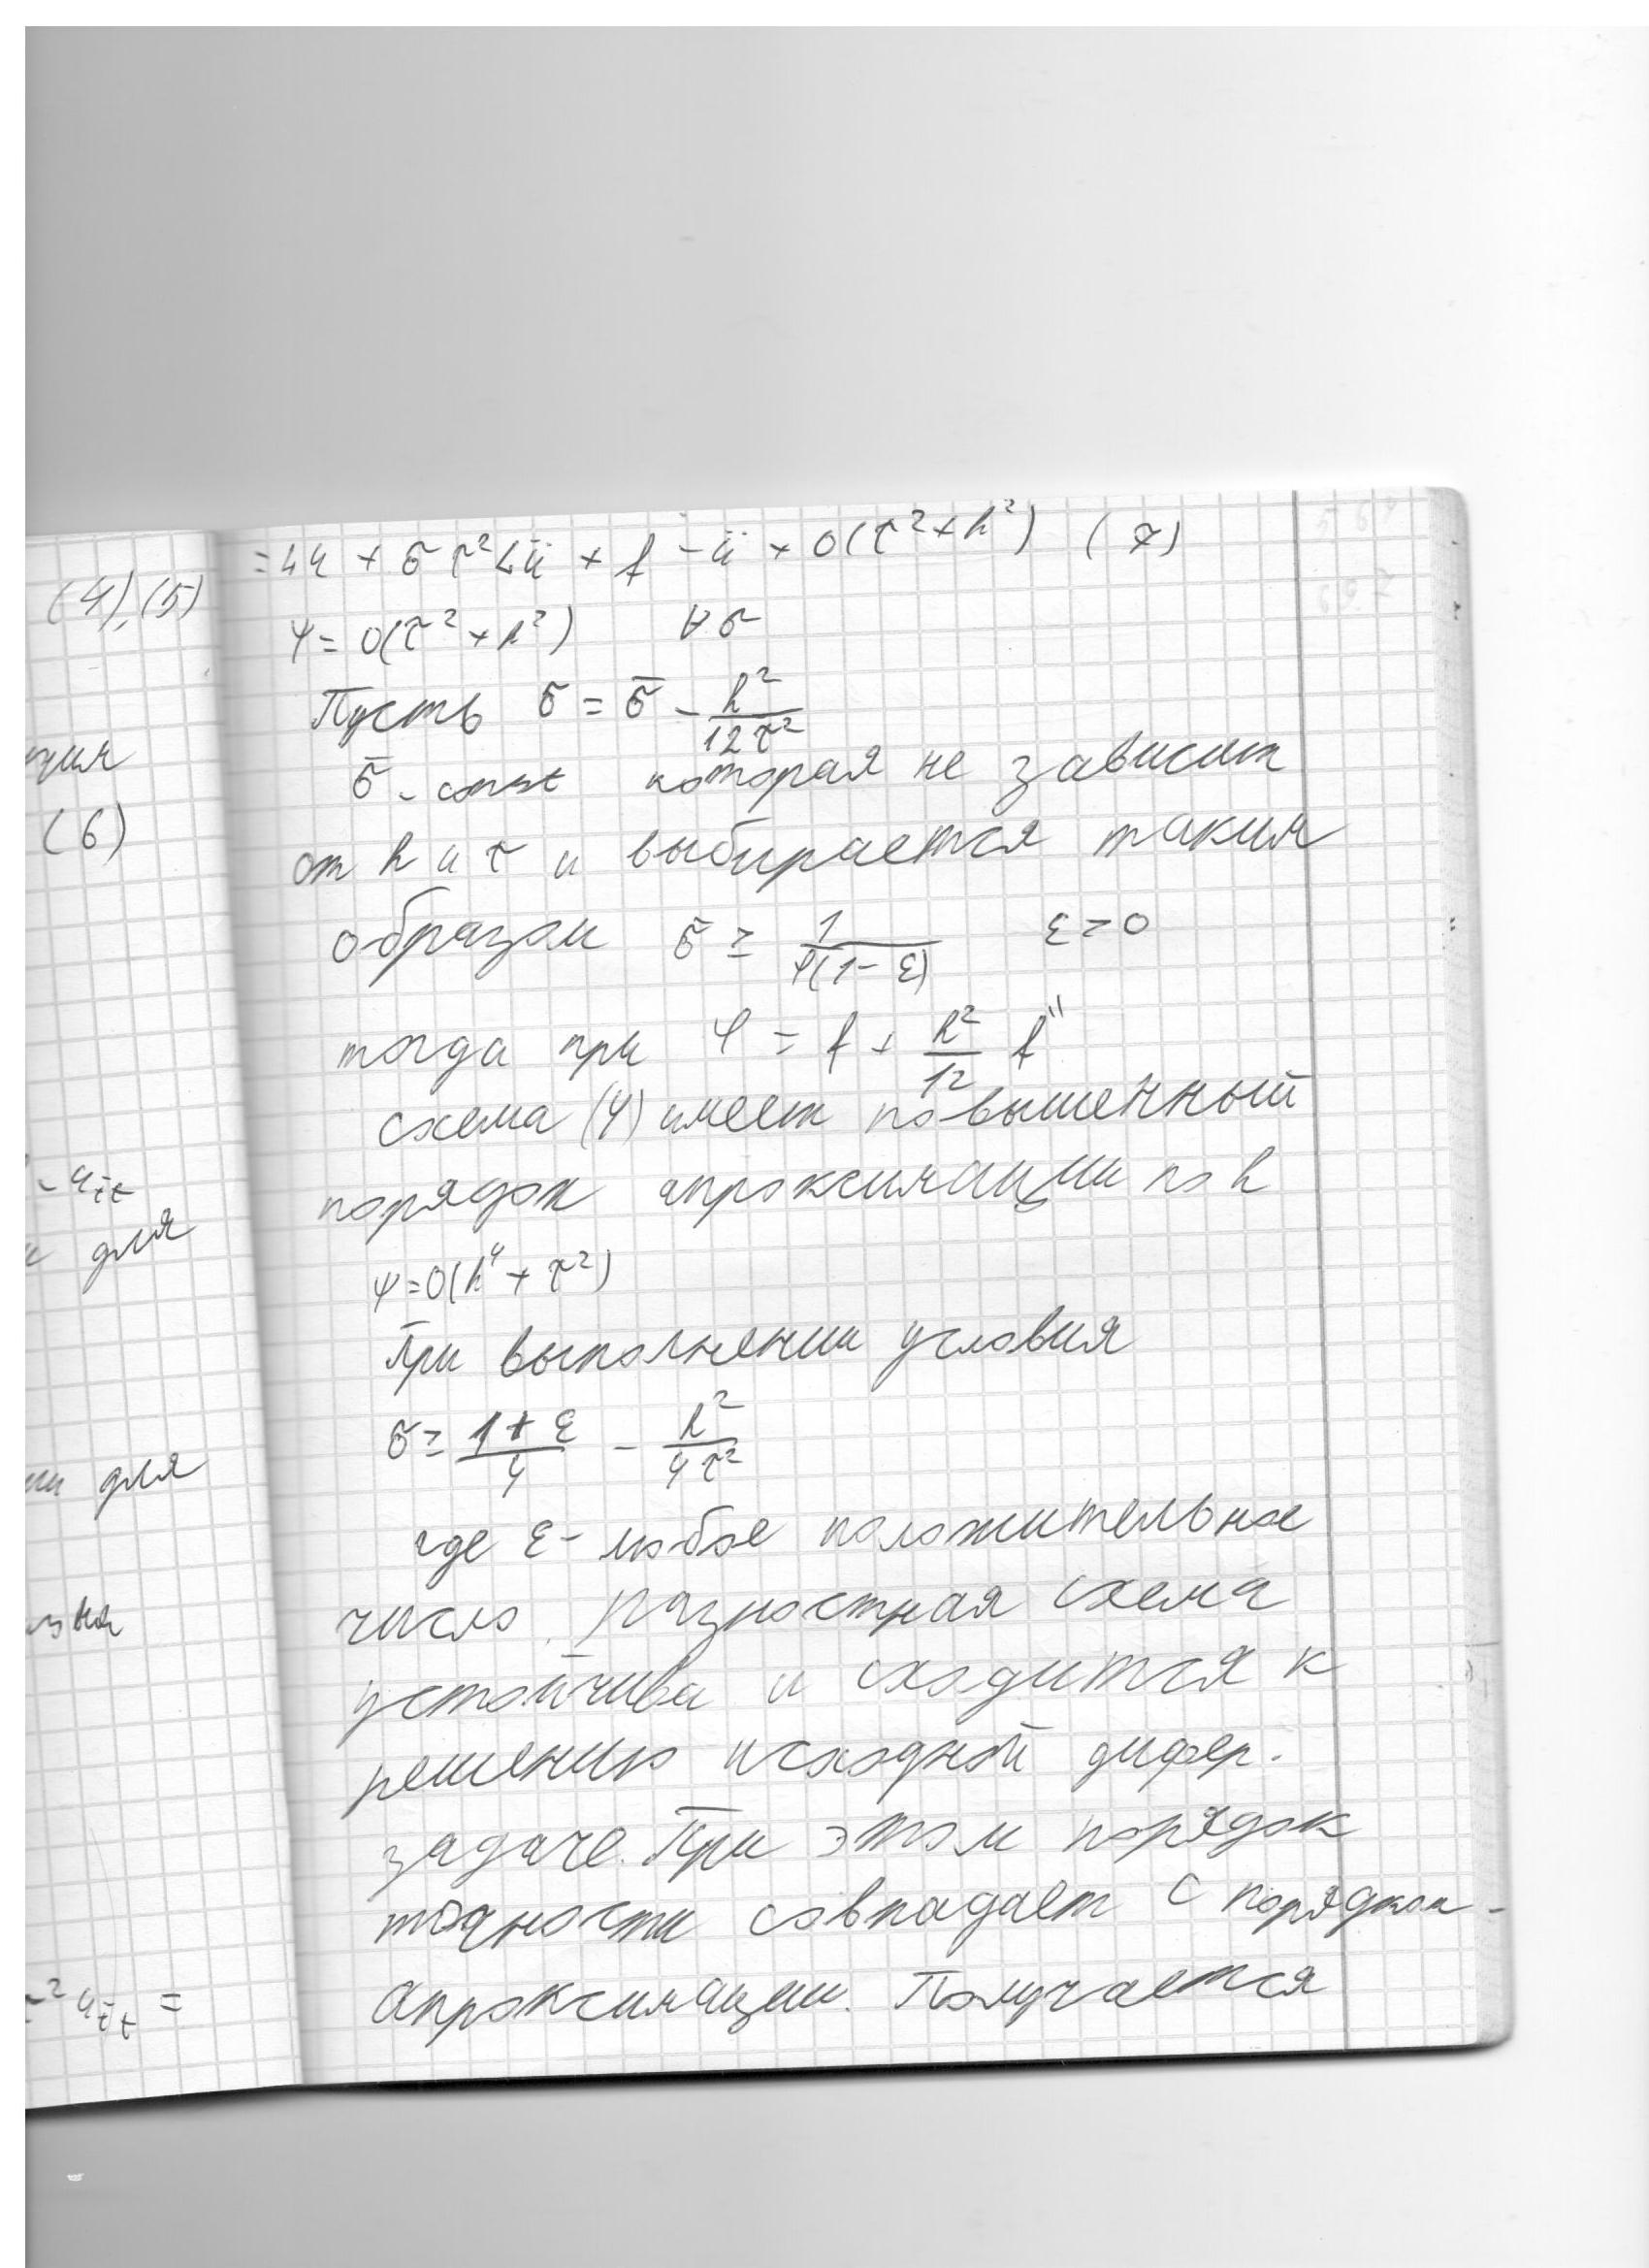 (4),(5)
ция
(6)
- u_{t̄t}
и для
ми для
зня
τ² u_{t̄t} =
= Lu + σ τ² Lü + f - ü + O(τ² + h²) (7)
ψ = O(τ² + h²) ∀σ
Пусть σ = σ̄ - h²/(12τ²)
σ̄ - const которая не зависит
от h и τ и выбирается таким
образом σ̄ ≥ 1/(4(1-ε)) ε > 0
тогда при φ = f + h²/12 f''
схема (4) имеет повышенный
порядок апроксимации по h
ψ = O(h⁴ + τ²)
При выполнении условия
σ ≥ (1+ε)/4 - h²/(4τ²)
где ε - любое положительное
число. Разностная схема
устойчива и сходится к
решению исходной дифер.
задаче. При этом порядок
точности совпадает с порядком -
апроксимации. Получается